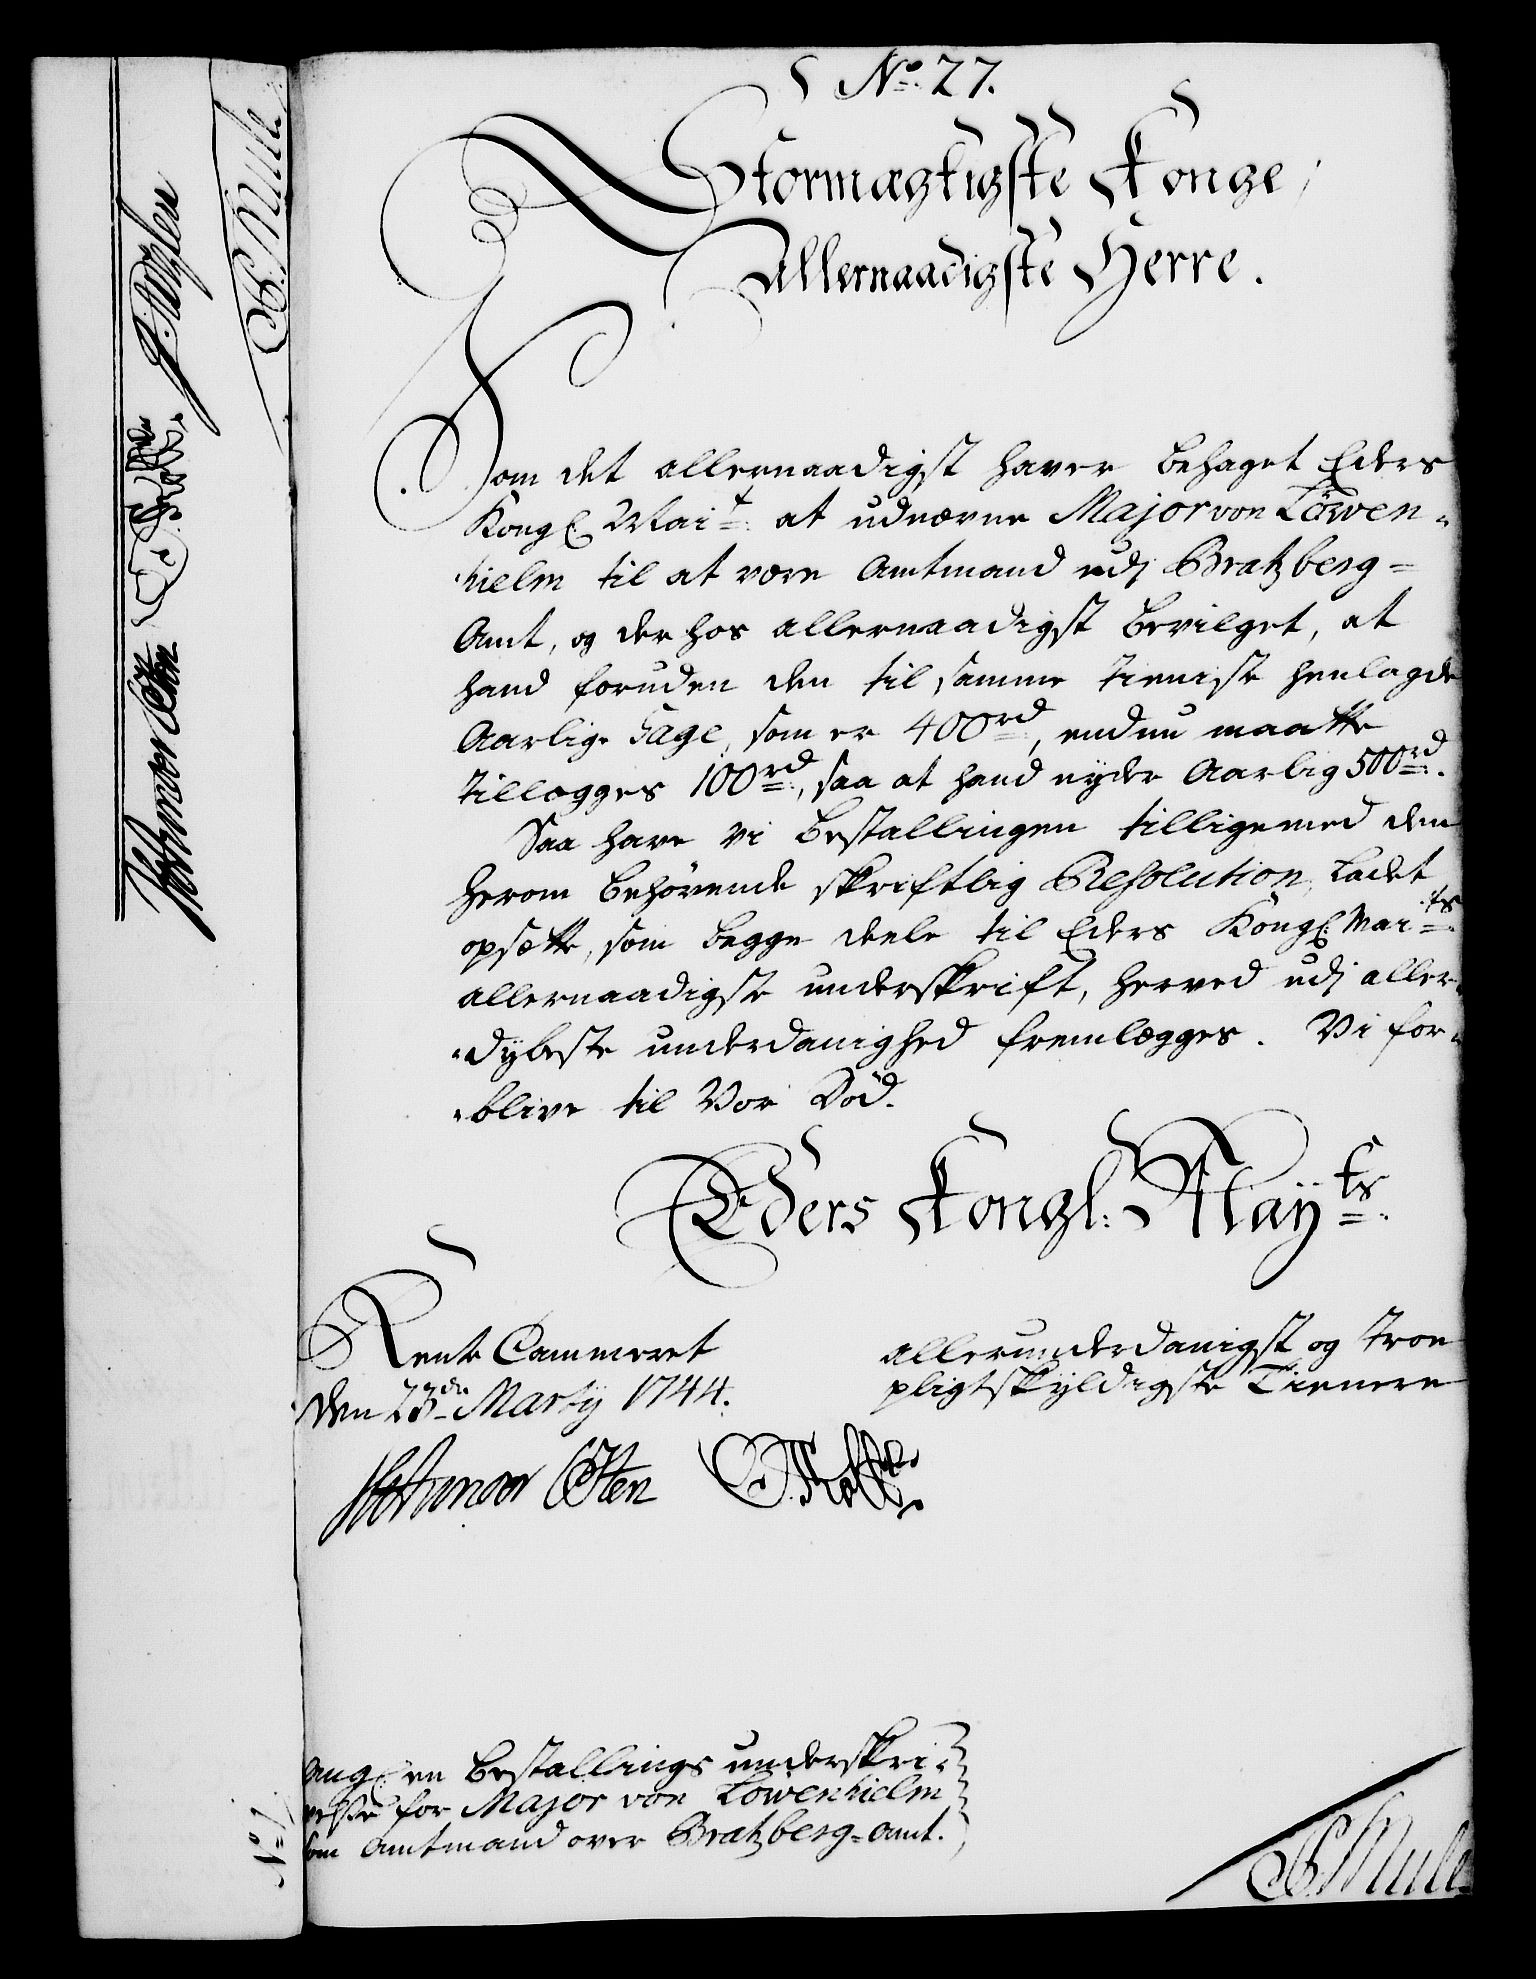 No. 27.
Stormægtigste Konge,
Allernaadigste Herre.
Som det allernaadigst haver behaget Eders
Kongl. Mait: at udnævne Major von Löwen-
hielm til at være Amtmand udj Bratzberg-
Amt, og der hos allernaadigst bevilget, at
hand foruden den til samme tieniste henlagde
Aarlige Gage, som er 400rd, endnu maatte
tillægges 100rd, saa at hand nyder Aarlig 500rd.
Saa have Vi Bestallingen tilligemed den
herom behørende skriftlig Resolution, ladet
opsætte, som begge deele til Eders Kongl: Maits
allernaadigste underskrift, herved udj aller-
dybeste underdanighed fremlægges. Vi for-
blive til Vor Død.
Eders Kongl: Mayts
Rente Cammeret
den 23de Marty 1744.
allerunderdanigst og troe
pligtskyldigste Tienere
ang: en Bestallings underskri-
velse for Major von Löwenhielm
som Amtmand over Bratzberg-Amt.
No 1
Mule
Mule